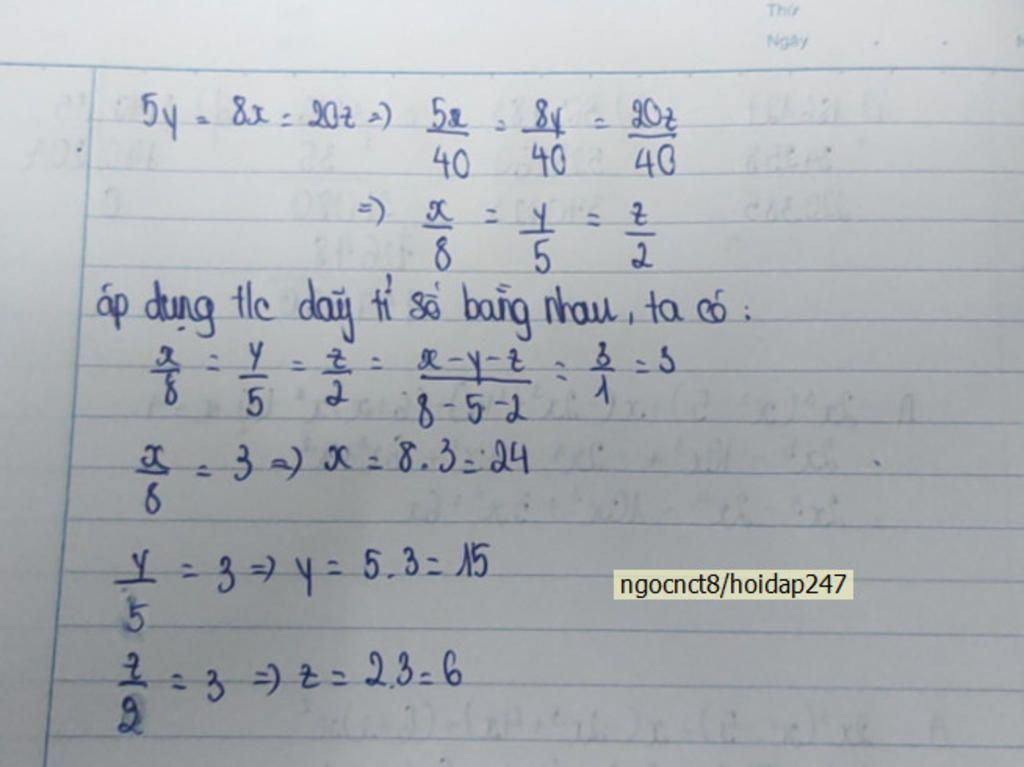 Thứ
Ngày
5y = 8x = 20z => 5x/40 = 8y/40 = 20z/40
=> x/8 = y/5 = z/2
áp dụng t/c dãy tỉ số bằng nhau, ta có :
x/8 = y/5 = z/2 = x-y-z/8-5-2 = 3/1 = 3
x/8 = 3 => x = 8.3 = 24
y/5 = 3 => y = 5.3 = 15
ngocnct8/hoidap247
z/2 = 3 => z = 2.3 = 6